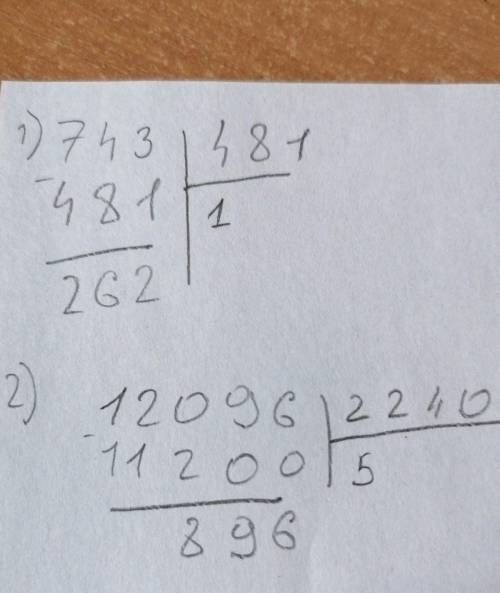 1) 743 | 481
- 481 | 1
262
2) 12096 | 2240
- 11200 | 5
896